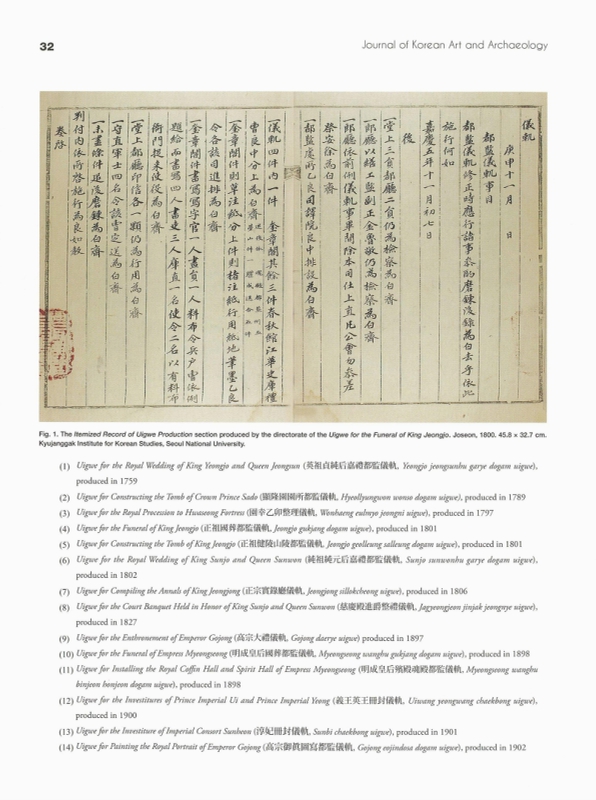 32
Journal of Korean Art and Archaeology
儀軌
庚申十一月 日
都監儀軌事目
都監儀軌修正時應行諸事參酌磨鍊後錄為白去乎依此
施行何如
嘉慶五年十一月初七日
後
一堂上三員郎廳二員仍為檢察為白齊
一郎廳以繕工監副正金魯敬仍為檢察為白齊
一郎廳依前例儀軌事畢間除本司仕上直凡公會勿參差
祭安徐為白齊
一都監處所乙良司譯院良中排設為白齊
一儀軌四件內一件 奎章閣其餘三件春秋館江華史庫禮
曹良中分上為白齊
一奎章閣件則草注紙分上件則楮注紙行用紙地筆墨乙良
令各該司進排為白齊
一奎章閣件書寫寫字官一人畫員一人料布令兵戶曹依例
題給而書寫四人畫史三人庫直一名使令二名以有料布
衙門捉來使役為白齊
一堂上郎廳印信各一顆仍為行用為白齊
一守直軍士四名令該曹定送為白齊
一未盡條件追後磨鍊為白齊
判付內依所啓施行為良如教
Fig. 1. The Itemized Record of Uigwe Production section produced by the directorate of the Uigwe for the Funeral of King Jeongjo. Joseon, 1800. 45.8 × 32.7 cm.
Kyujanggak Institute for Korean Studies, Seoul National University.
(1) Uigwe for the Royal Wedding of King Yeongjo and Queen Jeongsun (英祖貞純后嘉禮都監儀軌, Yeongjo jeongsunhu garye dogam uigwe),
produced in 1759
(2) Uigwe for Constructing the Tomb of Crown Prince Sado (顯隆園園所都監儀軌, Hyeollyungwon wonso dogam uigwe), produced in 1789
(3) Uigwe for the Royal Procession to Hwaseong Fortress (園幸乙卯整理儀軌, Wonhaeng eulmyo jeongni uigwe), produced in 1797
(4) Uigwe for the Funeral of King Jeongjo (正祖國葬都監儀軌, Jeongjo gukjang dogam uigwe), produced in 1801
(5) Uigwe for Constructing the Tomb of King Jeongjo (正祖健陵山陵都監儀軌, Jeongjo geolleung salleung dogam uigwe), produced in 1801
(6) Uigwe for the Royal Wedding of King Sunjo and Queen Sunwon (純祖純元后嘉禮都監儀軌, Sunjo sunwonhu garye dogam uigwe),
produced in 1802
(7) Uigwe for Compiling the Annals of King Jeongjong (正宗實錄廳儀軌, Jeongjong sillokcheong uigwe), produced in 1806
(8) Uigwe for the Court Banquet Held in Honor of King Sunjo and Queen Sunwon (慈慶殿進爵整禮儀軌, Jagyeongjeon jinjak jeongnye uigwe),
produced in 1827
(9) Uigwe for the Enthronement of Emperor Gojong (高宗大禮儀軌, Gojong daerye uigwe) produced in 1897
(10) Uigwe for the Funeral of Empress Myeongseong (明成皇后國葬都監儀軌, Myeongseong wanghu gukjang dogam uigwe), produced in 1898
(11) Uigwe for Installing the Royal Coffin Hall and Spirit Hall of Empress Myeongseong (明成皇后殯殿魂殿都監儀軌, Myeongseong wanghu
binjeon honjeon dogam uigwe), produced in 1898
(12) Uigwe for the Investitures of Prince Imperial Ui and Prince Imperial Yeong (義王英王冊封儀軌, Uiwang yeongwang chaekbong uigwe),
produced in 1900
(13) Uigwe for the Investiture of Imperial Consort Sunheon (淳妃冊封儀軌, Sunbi chaekbong uigwe), produced in 1901
(14) Uigwe for Painting the Royal Portrait of Emperor Gojong (高宗御眞圖寫都監儀軌, Gojong eojindosa dogam uigwe), produced in 1902